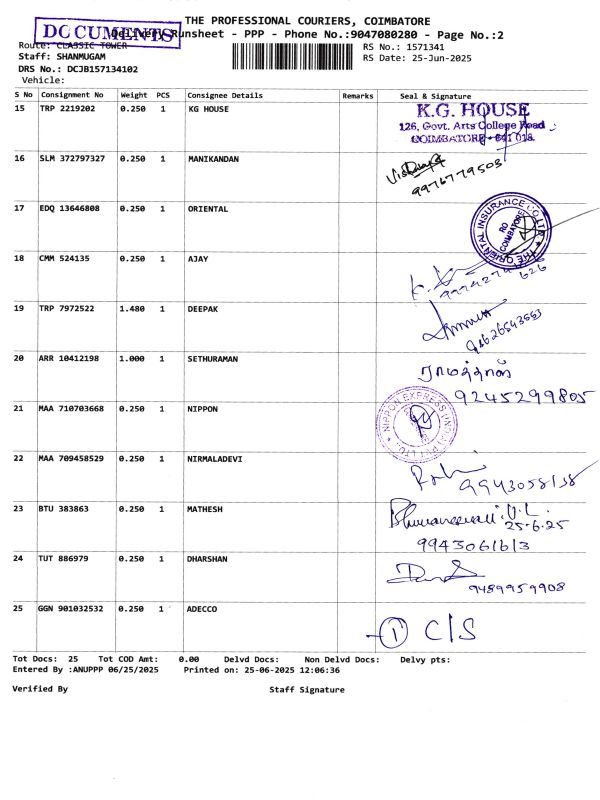 THE PROFESSIONAL COURIERS, COIMBATORE
DOCUMENTS
Delivery Runsheet - PPP - Phone No.:9047080280 - Page No.:2
Route: CLASSIC TOWER
RS No.: 1571341
Staff: SHANMUGAM
RS Date: 25-Jun-2025
DRS No.: DCJB157134102
Vehicle:
S No Consignment No Weight PCS Consignee Details Remarks Seal & Signature
15 TRP 2219202 0.250 1 KG HOUSE
K.G. HOUSE
126, Govt. Arts College Road
COIMBATORE - 641 018.
16 SLM 372797327 0.250 1 MANIKANDAN
9976779503
17 EDQ 13646808 0.250 1 ORIENTAL
THE ORIENTAL INSURANCE CO. LTD.
RO COIMBATORE
18 CMM 524135 0.250 1 AJAY
626
19 TRP 7972522 1.480 1 DEEPAK
20 ARR 10412198 1.000 1 SETHURAMAN
9245299805
21 MAA 710703668 0.250 1 NIPPON
NIPPON EXPRESS (INDIA) PVT. LTD.,
22 MAA 709458529 0.250 1 NIRMALADEVI
9943058138
23 BTU 383863 0.250 1 MATHESH
25-6-25
9943061613
24 TUT 886979 0.250 1 DHARSHAN
9489959908
25 GGN 901032532 0.250 1 ADECCO
1 C/S
Tot Docs: 25 Tot COD Amt: 0.00 Delvd Docs: Non Delvd Docs: Delvy pts:
Entered By :ANUPPP 06/25/2025 Printed on: 25-06-2025 12:06:36
Verified By Staff Signature